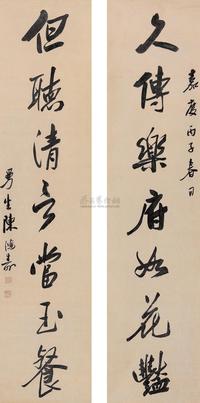 嘉慶丙子春日
久傳樂府如花豔
但聽清言當玉餐
曼生陳鴻壽